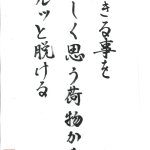 きる事を
しく思う荷物か
ルッと脱ける